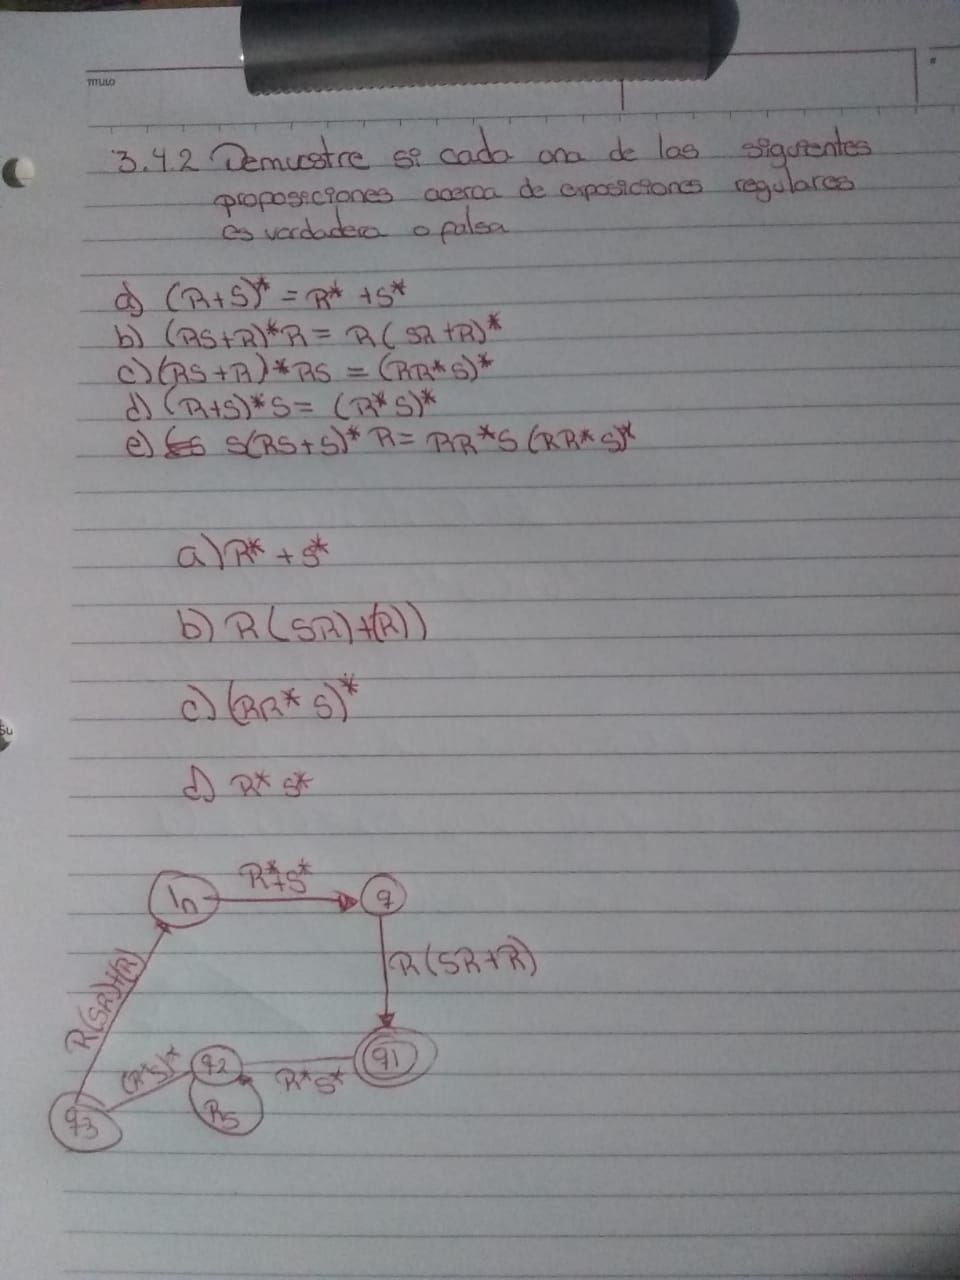 TITULO
3.4.2 Demuestre si cada una de las siguientes
proposiciones acerca de exposiciones regulares
es verdadera o falsa
a) (R+S)* = R* + S*
b) (RS+R)*R = R(SR+R)*
c) (RS+R)*RS = (RR*S)*
d) (R+S)*S = (R*S)*
e) S(RS+S)*R = RR*S(RR*S)*
a) R* + S*
b) R(SR)+(R))
c) (RR*S)*
d) R*S*
R*+S*
In
q
R(SR+R)
R(SR)+(R)
(R*S)*
q2
R*S*
q1
q3
RS